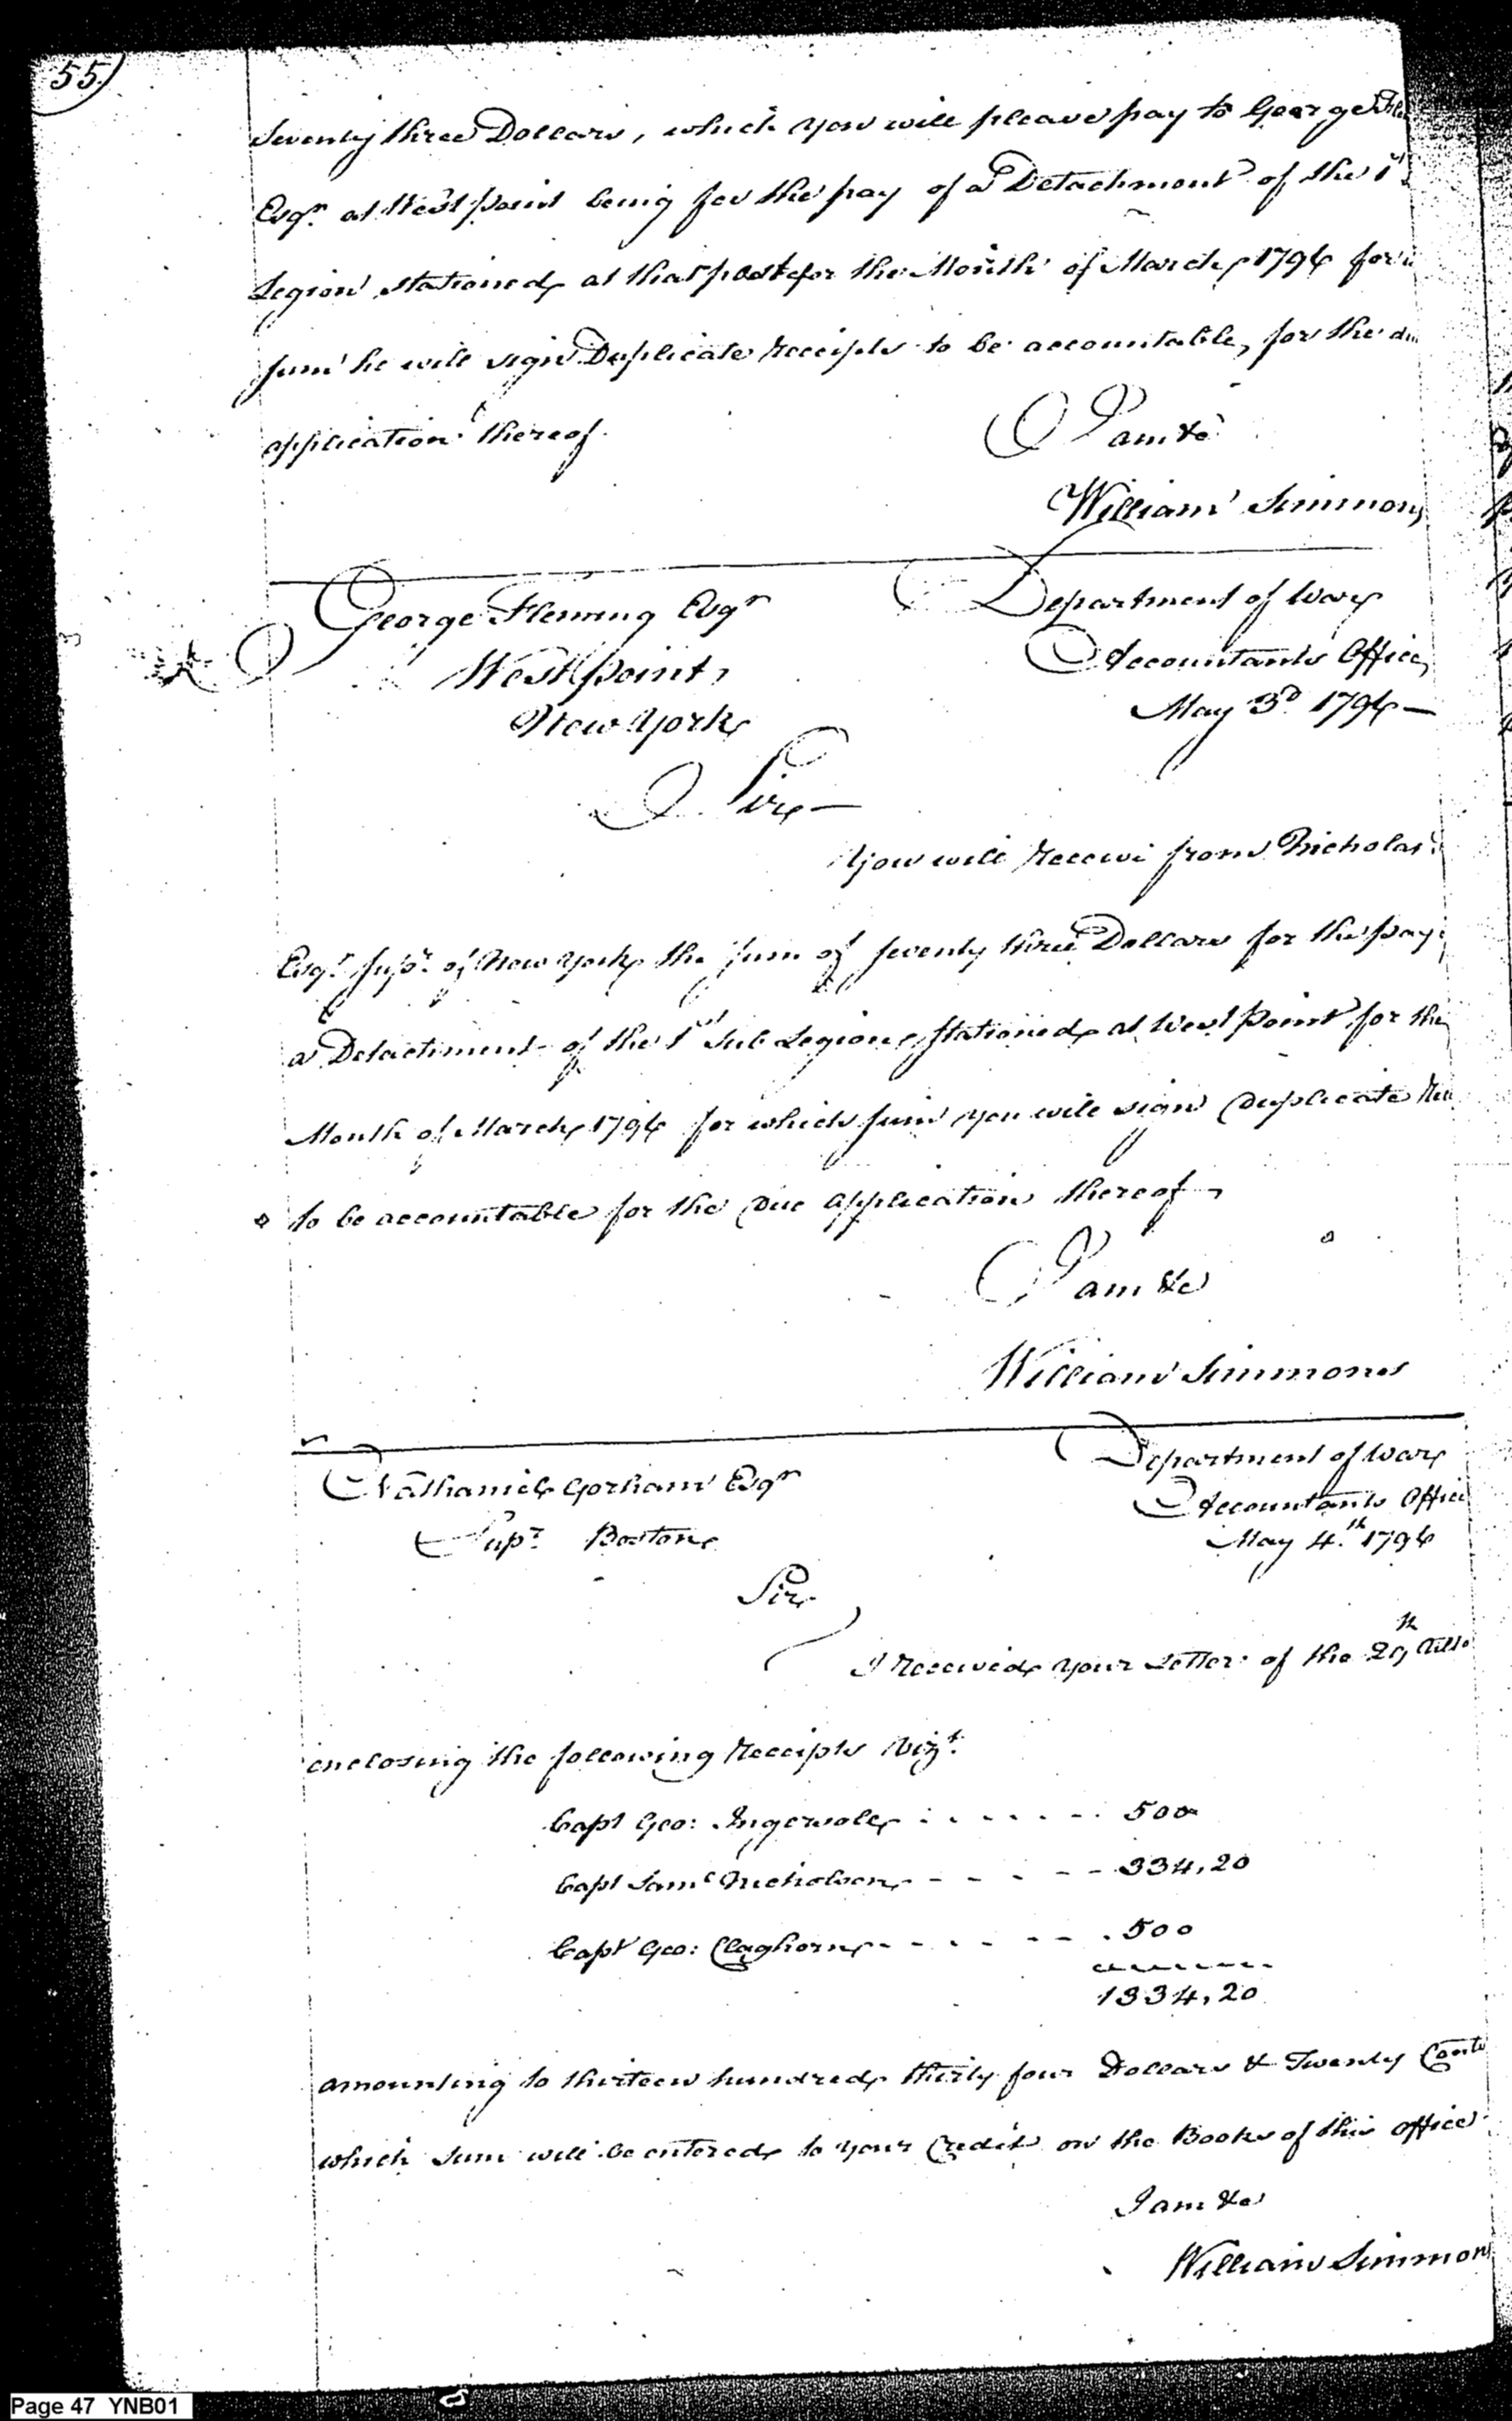 55
Seventy three Dollars, which you will please pay to George
Esqr. at West point being for the pay of a Detachment of the 1st
Legion stationed at that post for the Month of March 1794 for
sum he will sign Duplicate receipts to be accountable, for the due
application thereof.
I am &c
William Simmons
George Fleming Esqr
West point
New York
Department of War
Accountants Office,
May 3d 1794 —
Sir —
You will receive from Nicholas
Esqr. Supr. of New York the sum of seventy three Dollars for the pay
a Detachment of the 1st Sub Legion, stationed at West Point for the
Month of March 1794 for which sum you will sign Duplicate
to be accountable for the Due application thereof
I am &c
William Simmons
Nathaniel Gorham Esqr
Supr. Boston
Department of War
Accountants Office
May 4.th 1794
Sir
I received your Letter of the 29th Ulto
enclosing the following receipts Vizt.
Capt Geo: Ingersoll . . . . . . 500
Capt Saml Nicholson - - - - - 334,20
Capt Geo: Claghorn - - - - - - . 500
1334,20
amounting to thirteen hundred thirty four Dollars & Twenty Cents
which sum will be entered to your Credit on the Books of this office
I am &c
William Simmons
Page 47 YNB01